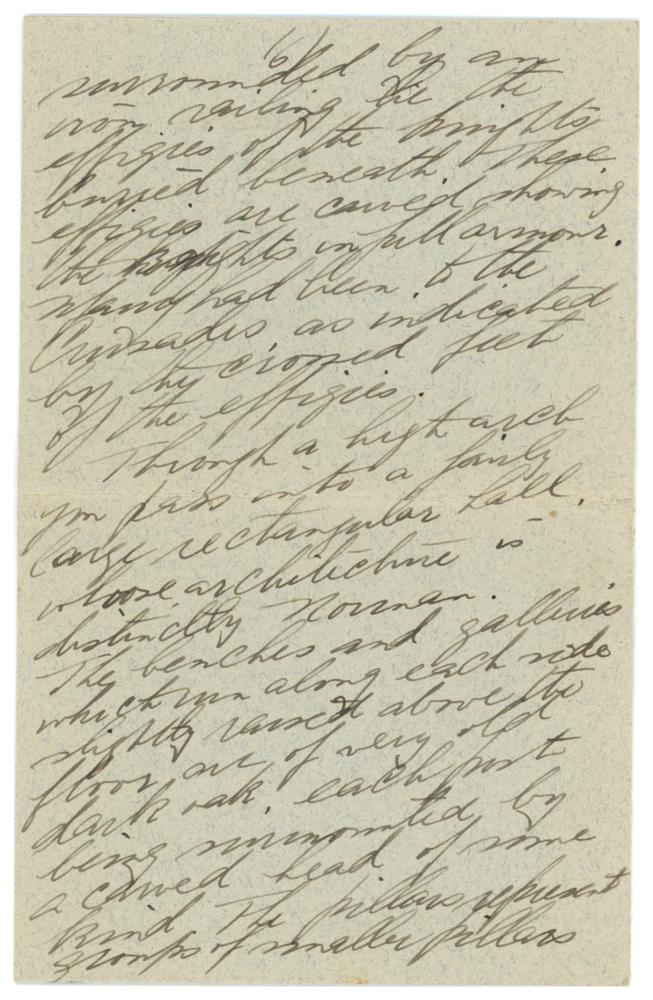 6)
surrounded by an
iron railing lie the
effigies of the knights
buried beneath. These
effigies are carved showing
the knights in full armour.
Many had been to the
Crusades as indicated
by the crossed feet
of the effigies.
Through a high arch
you pass into a fairly
large rectangular hall.
whose architecture is
distinctly Norman.
The benches and galleries
which run along each side
slightly raised above the
floor are of very old
dark oak, each post
being surmounted by
a carved head of some
kind The pillars represent
groups of smaller pillars